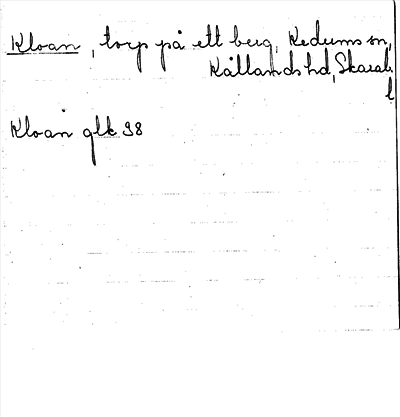 Kloan, torp på ett berg, Kedums sn,
Kållands hd, Skarab.
l
Kloan glk 98